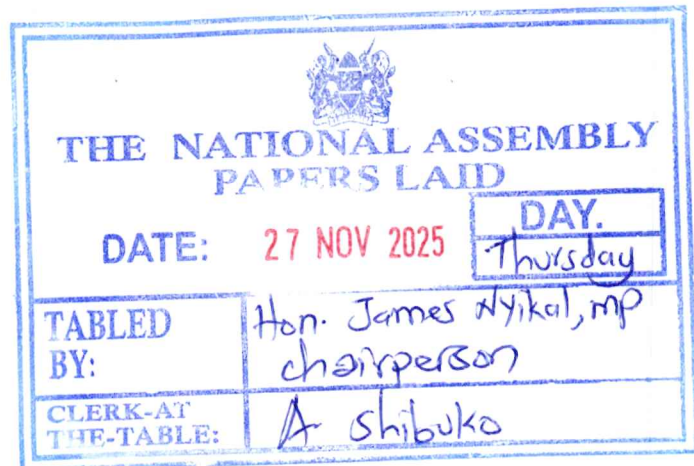 THE NATIONAL ASSEMBLY
PAPERS LAID
DATE: 27 NOV 2025
DAY.
Thursday
TABLED BY: Hon. James Nyikal, MP
chairperson
CLERK-AT THE-TABLE: A Shibuko